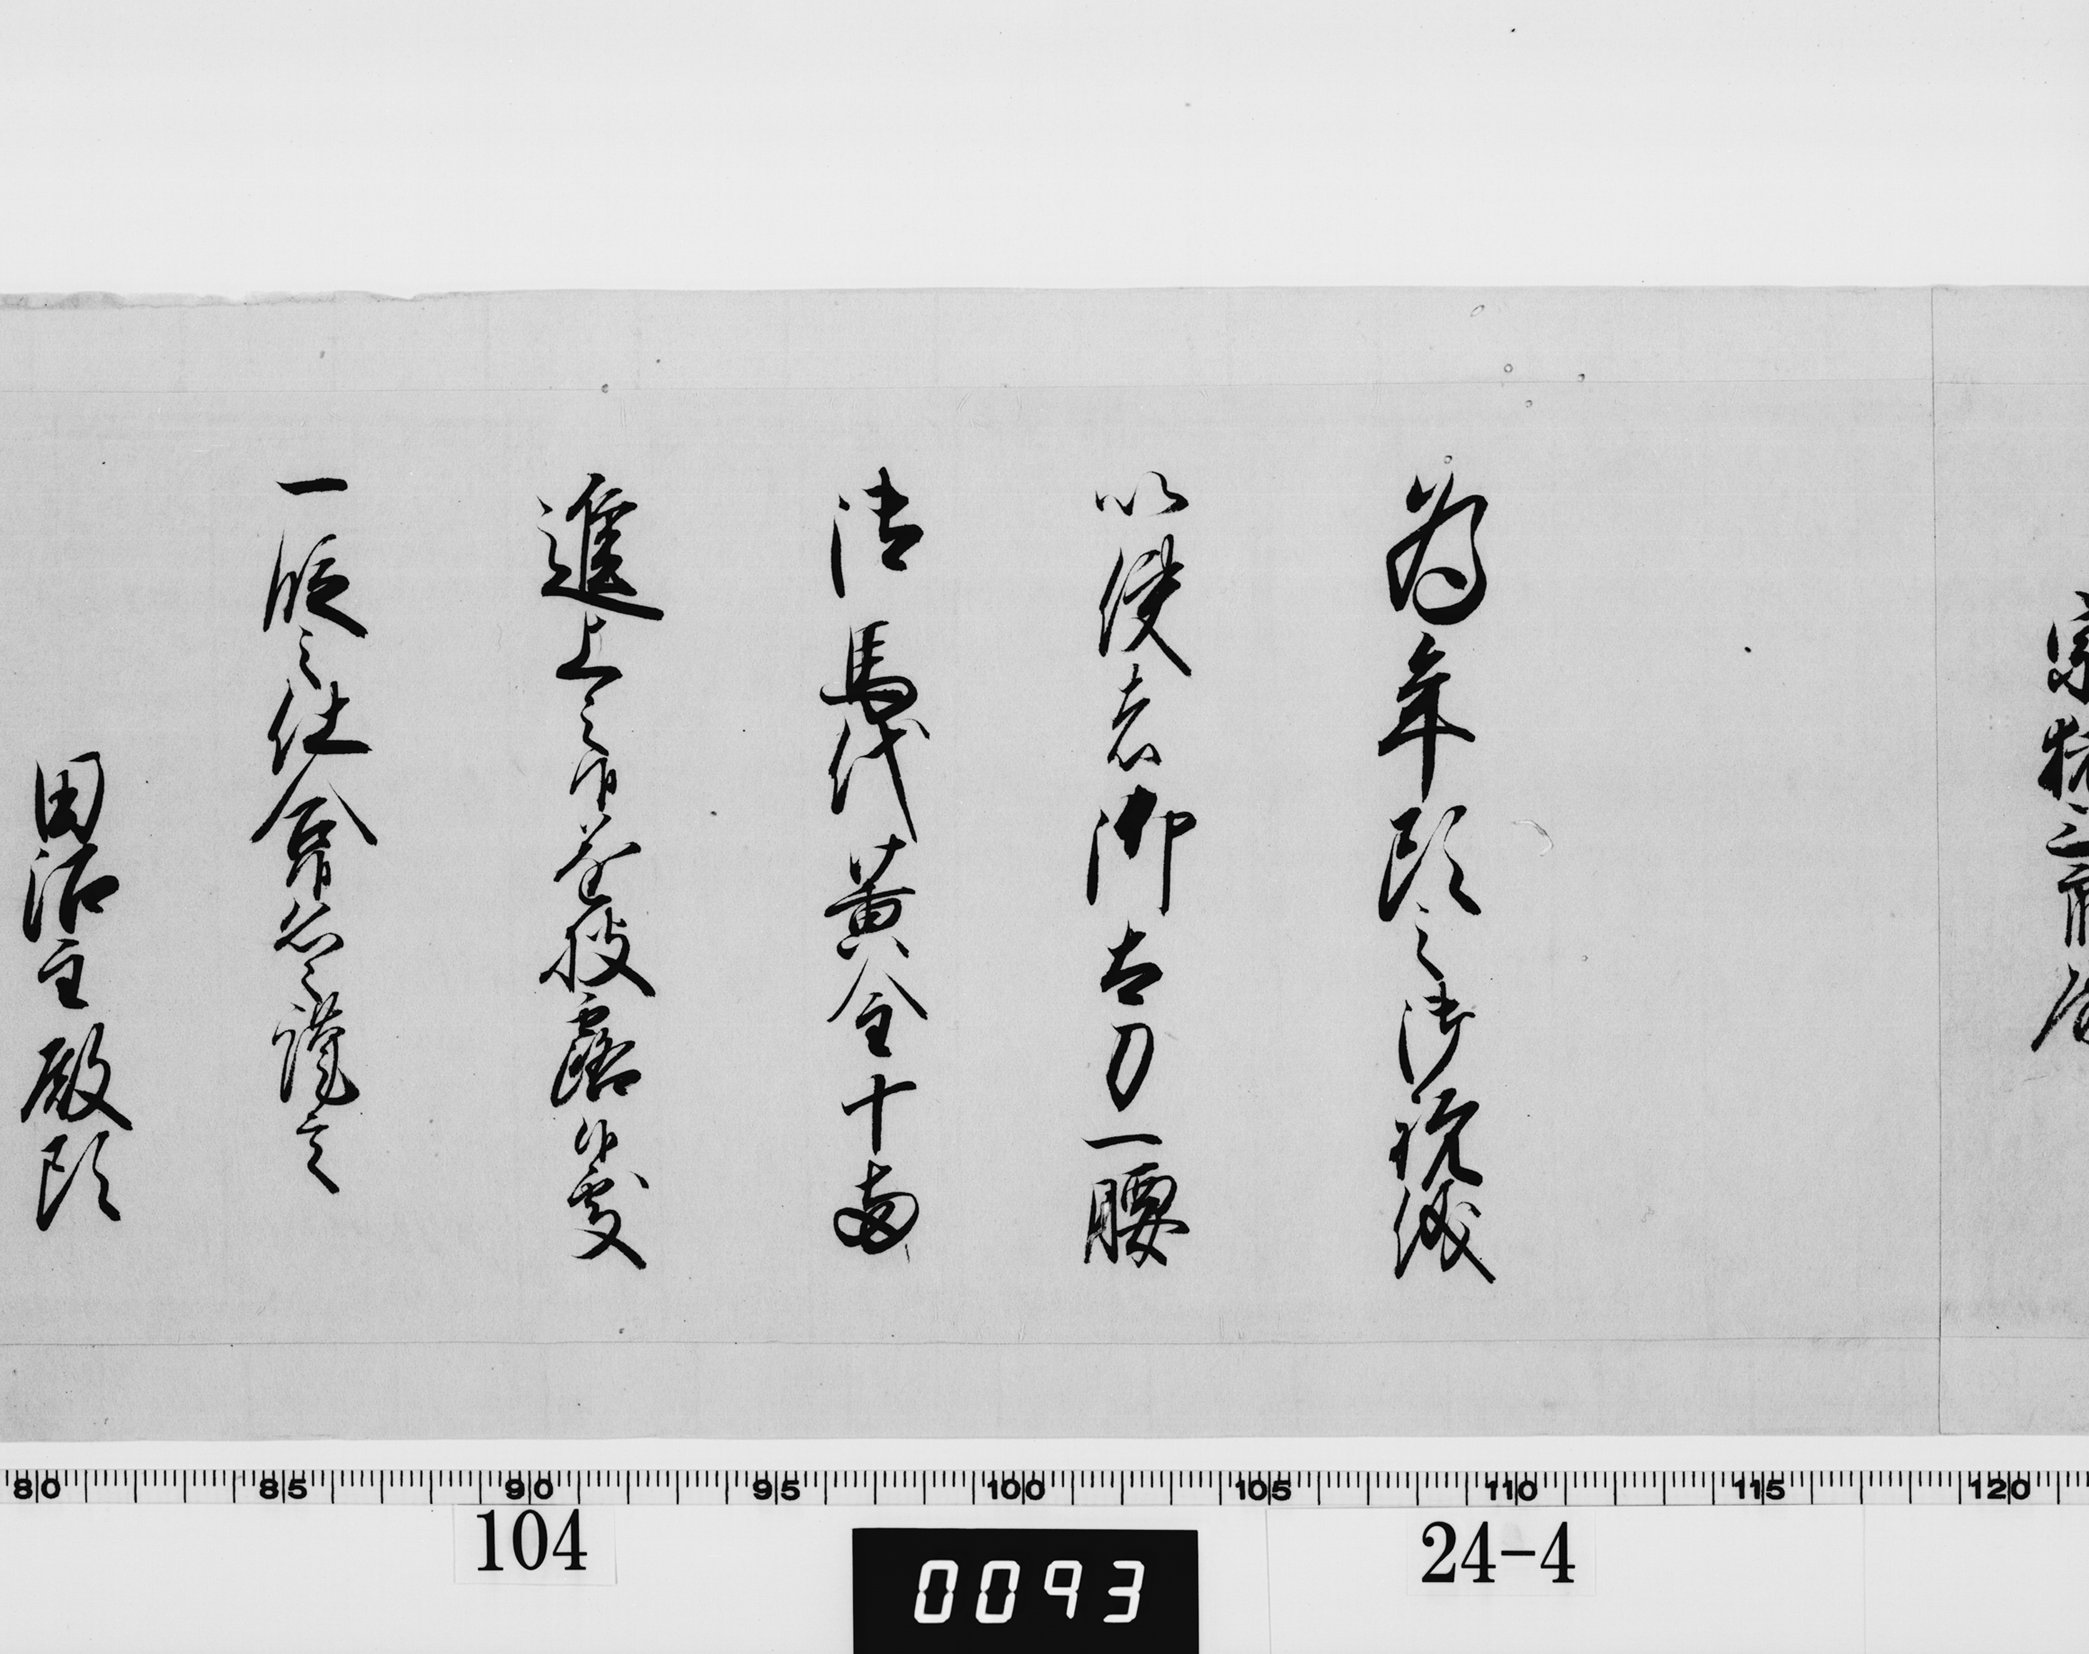 為年頭之御祝儀
以使者御太刀一腰
御馬代黄金十両
進上之遂披露候處
一段之仕合恐々謹言
田沼主殿頭
80 85 90 95 100 105 110 115 120
104
0093
24-4